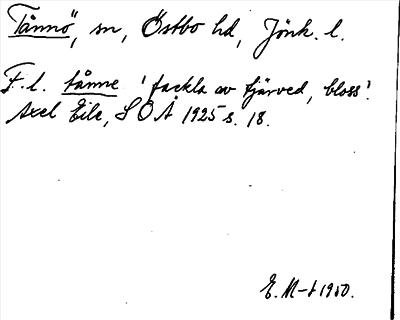 Tånnö, sn, Östbo hd, Jönk. l.
F. l. tånne 'fackla av tjärved, bloss'.
Axel Eile, SOÅ 1925 s. 18.
E. M-t 1950.